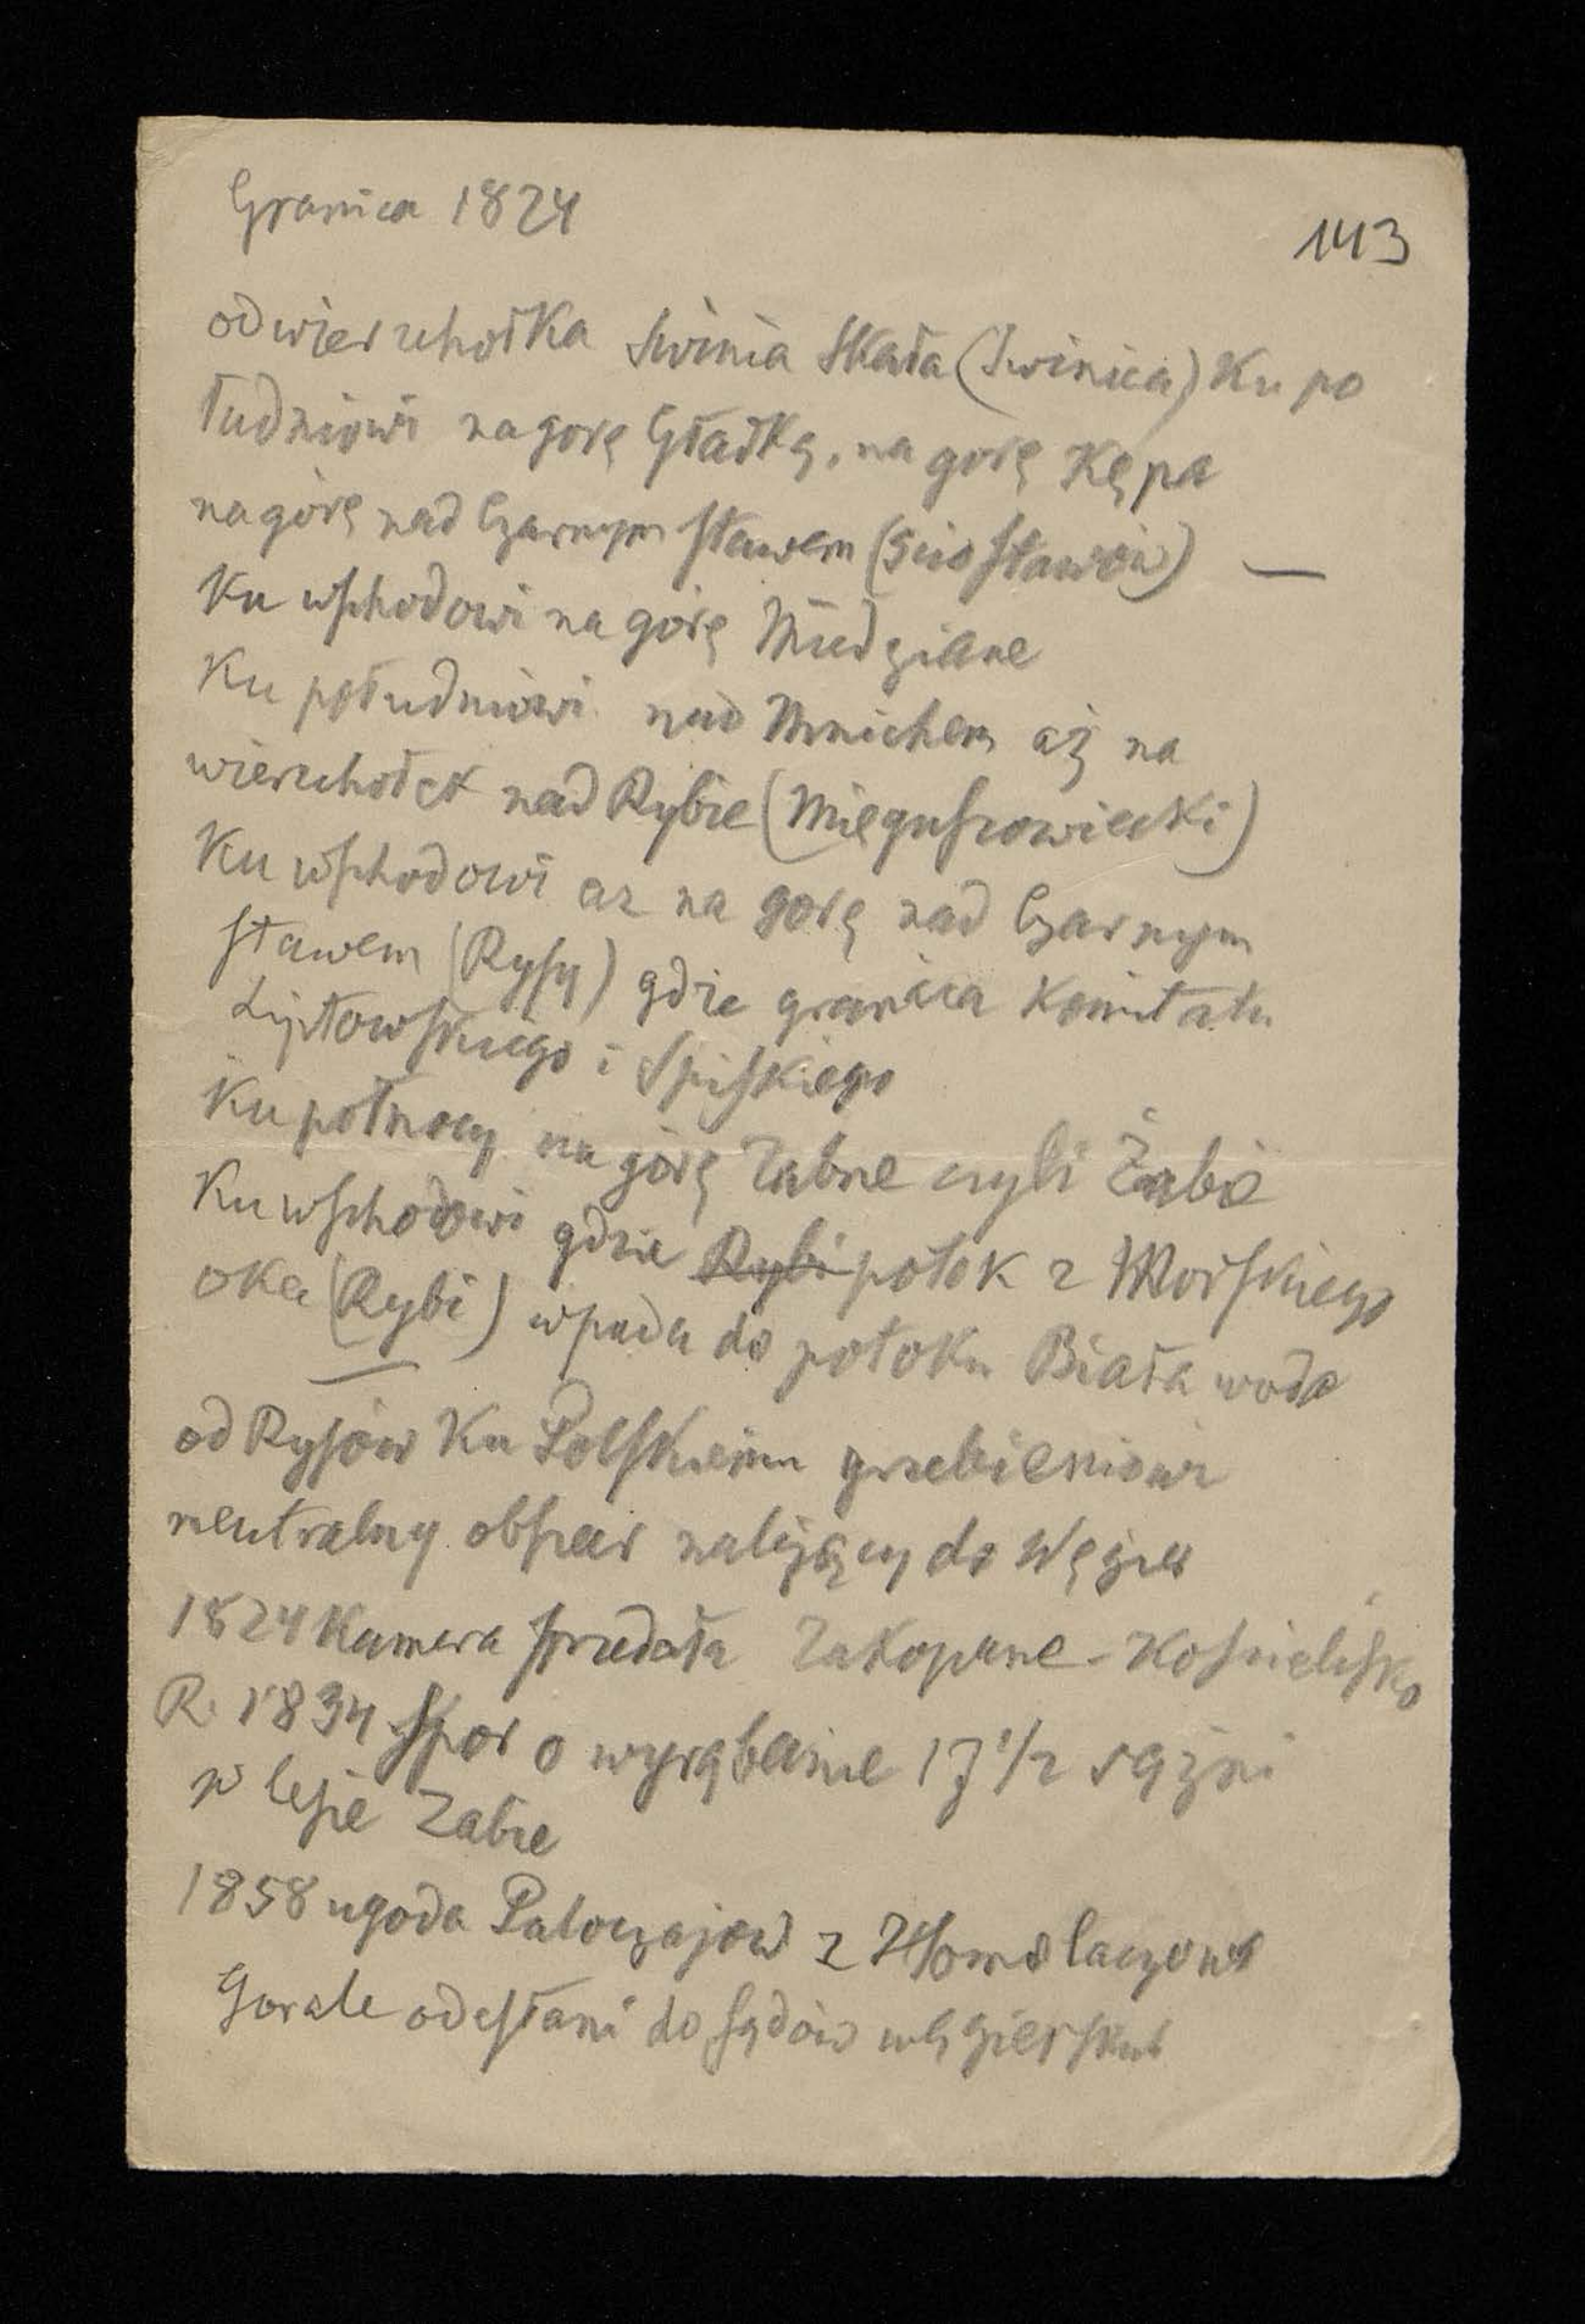 Granica 1824
143
od wierzchołka Swinia Skała (Swinica) Ku po
łudniowi na gorę Gładką, na gorę Kępa
na górę nad Czarnym stawem (5ciu stawów) —
Ku wschodowi na górę Miedziane
Ku południowi nad Mnichem aż na
wierzchołek nad Rybie (Mięguszowiecki)
Ku wschodowi az na gorę nad Czarnym
stawem (Rysy) gdzie granica Komitatu
Liptowskiego i Spiskiego
Ku północy na górę Zabne czyli Żabie
Ku wschodowi gdzie Rybi potok z Morskiego
oka (Rybi) wpada do potoku Biała woda
od Rysów Ku Polskiemu grzebieniowi
neutralny obszar należący do Węgier
1824 Kamera sprzedała Zakopane - Kościelisko
R. 1834 Spor o wyrąbanie 17 1/2 sążni
w lesie Zabie
1858 ugoda Paloczajow z Homolaczowi
Gorale odesłani do sądów węgierskich